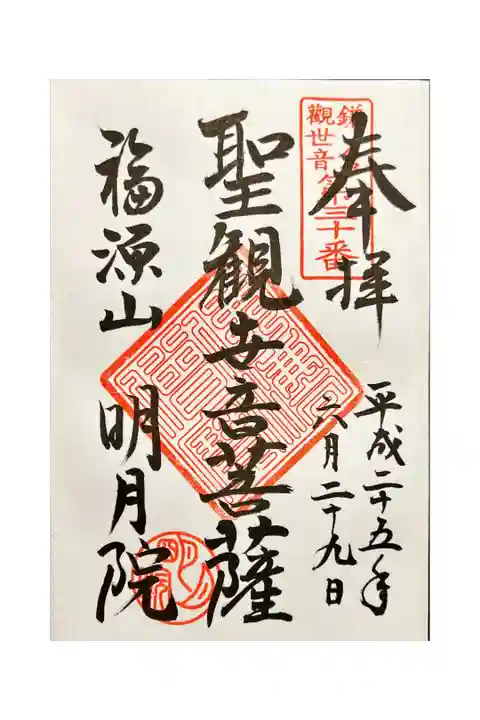 奉拝
平成二十五年
六月二十九日
聖観世音菩薩
福源山 明月院
觀世音第三十番